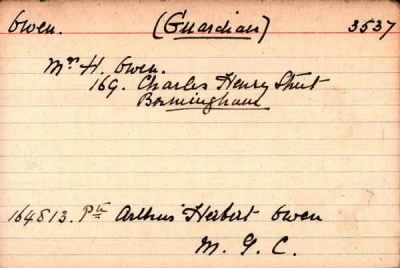 Owen. (Guardian) 3537
Mrs H. Owen.
169. Charles Henry Street
Birmingham
164813. Pte Arthur Herbert Owen
M. G. C.